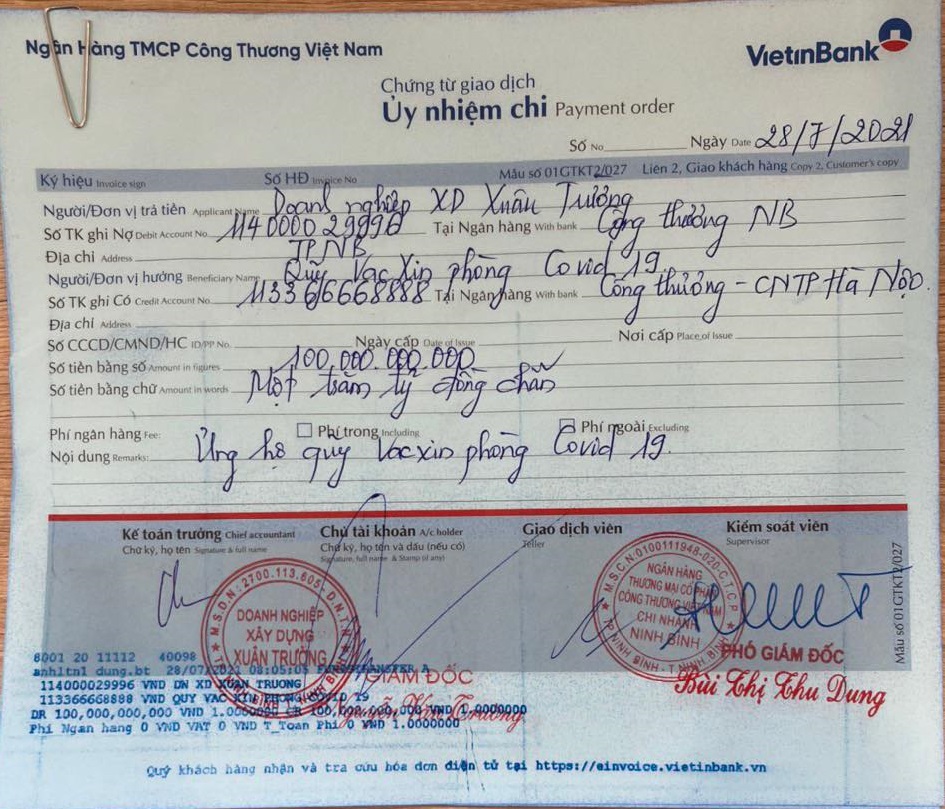 Ngân Hàng TMCP Công Thương Việt Nam
VietinBank
Chứng từ giao dịch
Ủy nhiệm chi Payment order
Số No Ngày Date 28/7/2021
Ký hiệu Invoice sign Số HĐ Invoice No Mẫu số 01GTKT2/027 Liên 2, Giao khách hàng Copy 2, Customer's copy
Người/Đơn vị trả tiền Applicant Name Doanh nghiệp XD Xuân Trường
Số TK ghi Nợ Debit Account No. 114000029996 Tại Ngân hàng With bank Công thương NB
Địa chỉ Address TP NB
Người/Đơn vị hưởng Beneficiary Name Quỹ Vac Xin phòng Covid 19.
Số TK ghi Có Credit Account No. 113366668888 Tại Ngân hàng With bank Công thương - CNTP Hà Nội.
Địa chỉ Address
Số CCCD/CMND/HC ID/PP No. Ngày cấp Date of Issue Nơi cấp Place of Issue
Số tiền bằng số Amount in figures 100,000.000.000
Số tiền bằng chữ Amount in words Một trăm tỷ đồng chẵn
Phí ngân hàng Fee: Phí trong Including Phí ngoài Excluding
Nội dung Remarks: Ủng hộ quỹ Vacxin phòng Covid 19.
Kế toán trưởng Chief accountant Chủ tài khoản A/c holder Giao dịch viên Kiểm soát viên
Chữ ký, họ tên Signature & full name Chữ ký, họ tên và dấu (nếu có) Teller Supervisor
Signature, full name & Stamp (if any)
Mẫu số 01GTKT2/027
M.S.D.N:2700.113.605 D.N.T.N
DOANH NGHIỆP
XÂY DỰNG
XUÂN TRƯỜNG
M.S.C.N:0100111948-020-C.T.C.P
NGÂN HÀNG
THƯƠNG MẠI CỔ PHẦN
CÔNG THƯƠNG VIỆT NAM
CHI NHÁNH
NINH BÌNH
TP NINH BÌNH - T. NINH BÌNH
GIÁM ĐỐC
Nguyễn Văn Trường
PHÓ GIÁM ĐỐC
Bùi Thị Thu Dung
8001 20 11112 40098
anhltn1 dung.bt 28/07/2021 08:05:05
114000029996 VND DN XD XUAN TRUONG
113366668888 VND QUY VAC XIN PHONG COVID 19
DR 100,000,000,000 VND 1.0000000 CR 100,000,000,000 VND 1.0000000
Phi Ngan hang 0 VND VAT 0 VND T_Toan Phi 0 VND 1.0000000
Quý khách hàng nhận và tra cứu hóa đơn điện tử tại https://einvoice.vietinbank.vn